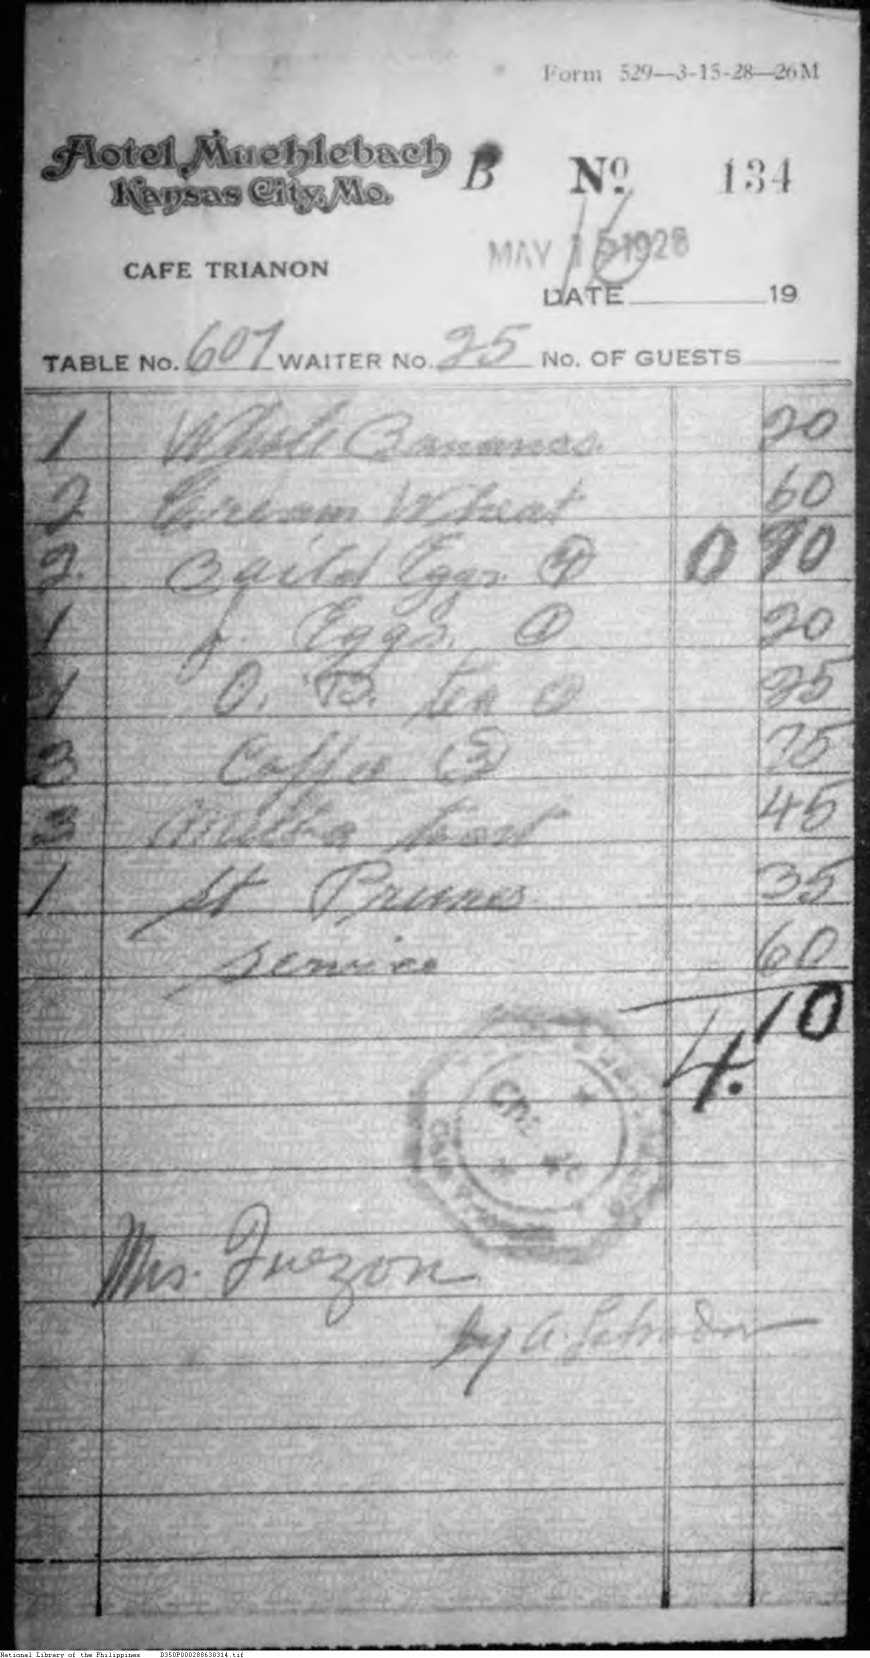 Form 529—3-15-28—26M
Hotel Muehlebach
Kansas City, Mo.
B No. 134
CAFE TRIANON
MAY 15 1928
DATE 19
TABLE No. 607 WAITER No. 25 No. OF GUESTS
1 Whole Bananas. 20
2 Cream Wheat 60
2. Boild Eggs 4 0 90
1 f. Eggs. 1 20
1 O. P. tea 25
3 Coffee 3 75
3 Milk toast 45
1 St Prunes 35
Service 60
4.10
Mrs. Quezon
by A.
National Library of the Philippines D350P000288638314.tif